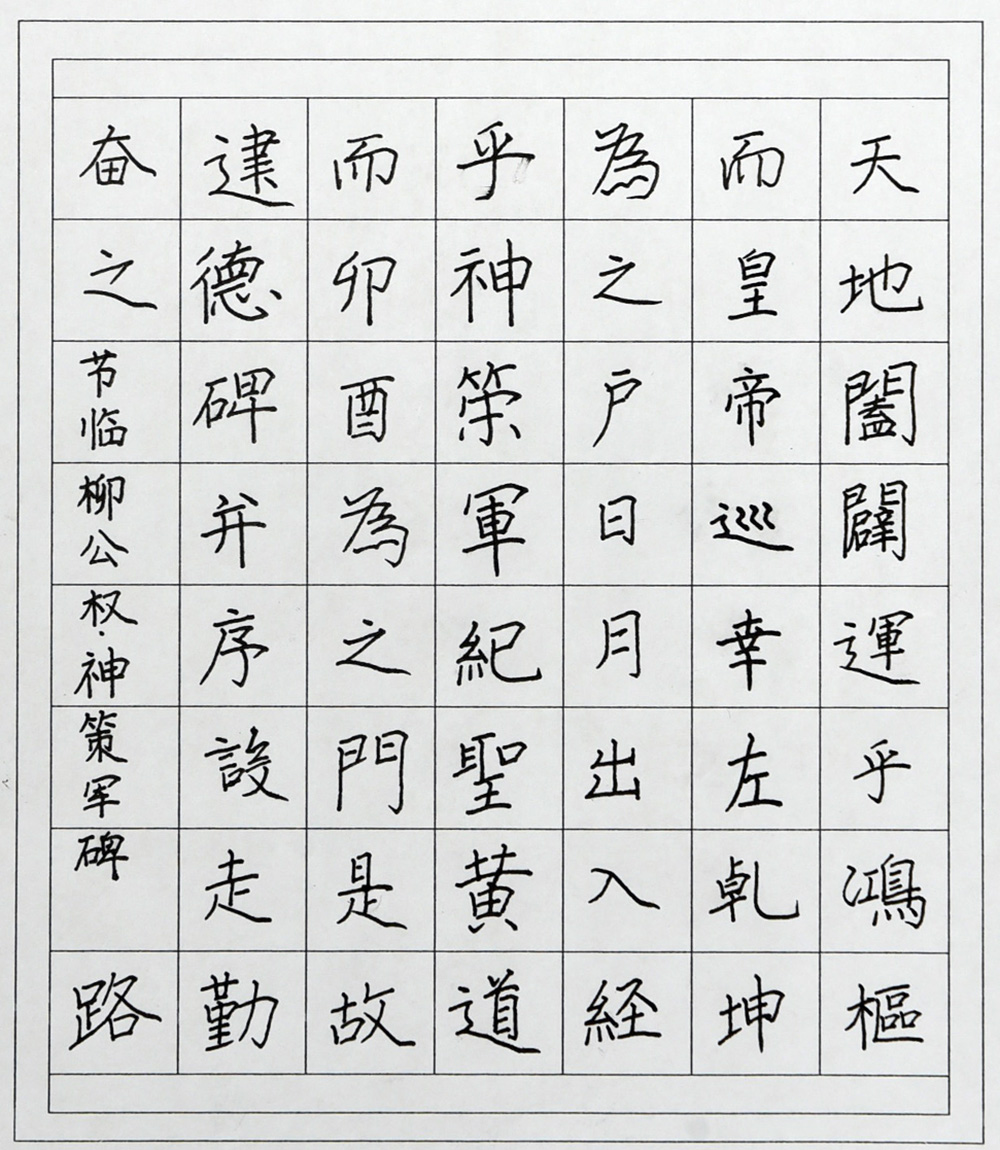 天地闔闢運乎鴻樞
而皇帝巡幸左乹坤
為之户日月出入経
乎神策軍紀聖黄道
而卯酉為之門是故
建德碑并序設走勤
奋之节临柳公权·神策军碑路